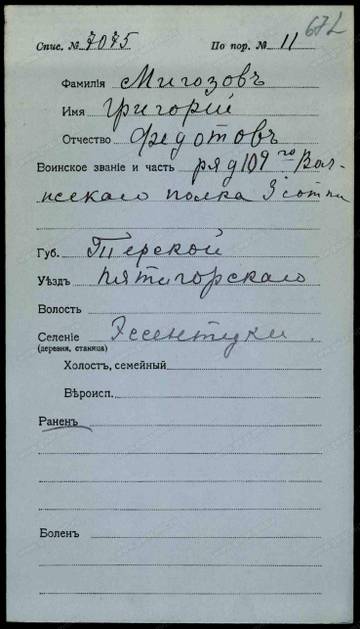 671
Спис. № 7075 По пор. № 11
Фамилія Мигозовъ
Имя Григорій
Отчество Федотовъ
Воинское званіе и часть ряд 109го Вол-
жскаго полка 3 сотни
Губ. Терской
Уѣздъ Пятигорскаго
Волость
Селеніе Эссентуки.
(деревня, станица)
Холостъ, семейный
Вѣроисп.
Раненъ
Боленъ